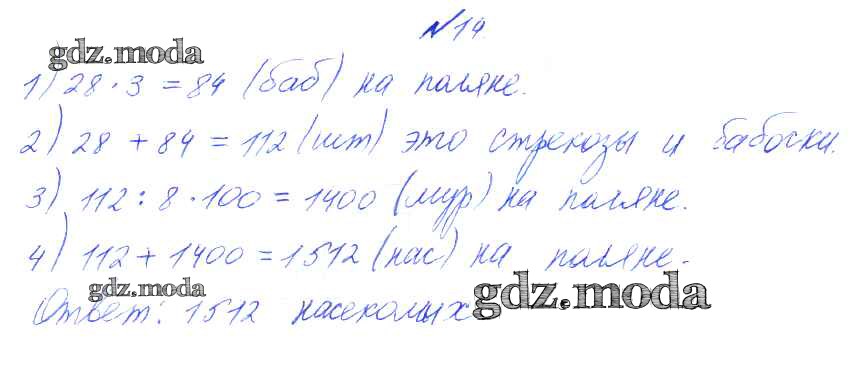 №14.
gdz.moda
1) 28 · 3 = 84 (баб) на поляне.
2) 28 + 84 = 112 (шт) это стрекозы и бабочки.
3) 112 : 8 · 100 = 1400 (мур) на поляне.
4) 112 + 1400 = 1512 (нас) на поляне.
gdz.moda
Ответ: 1512 насекомых
gdz.moda